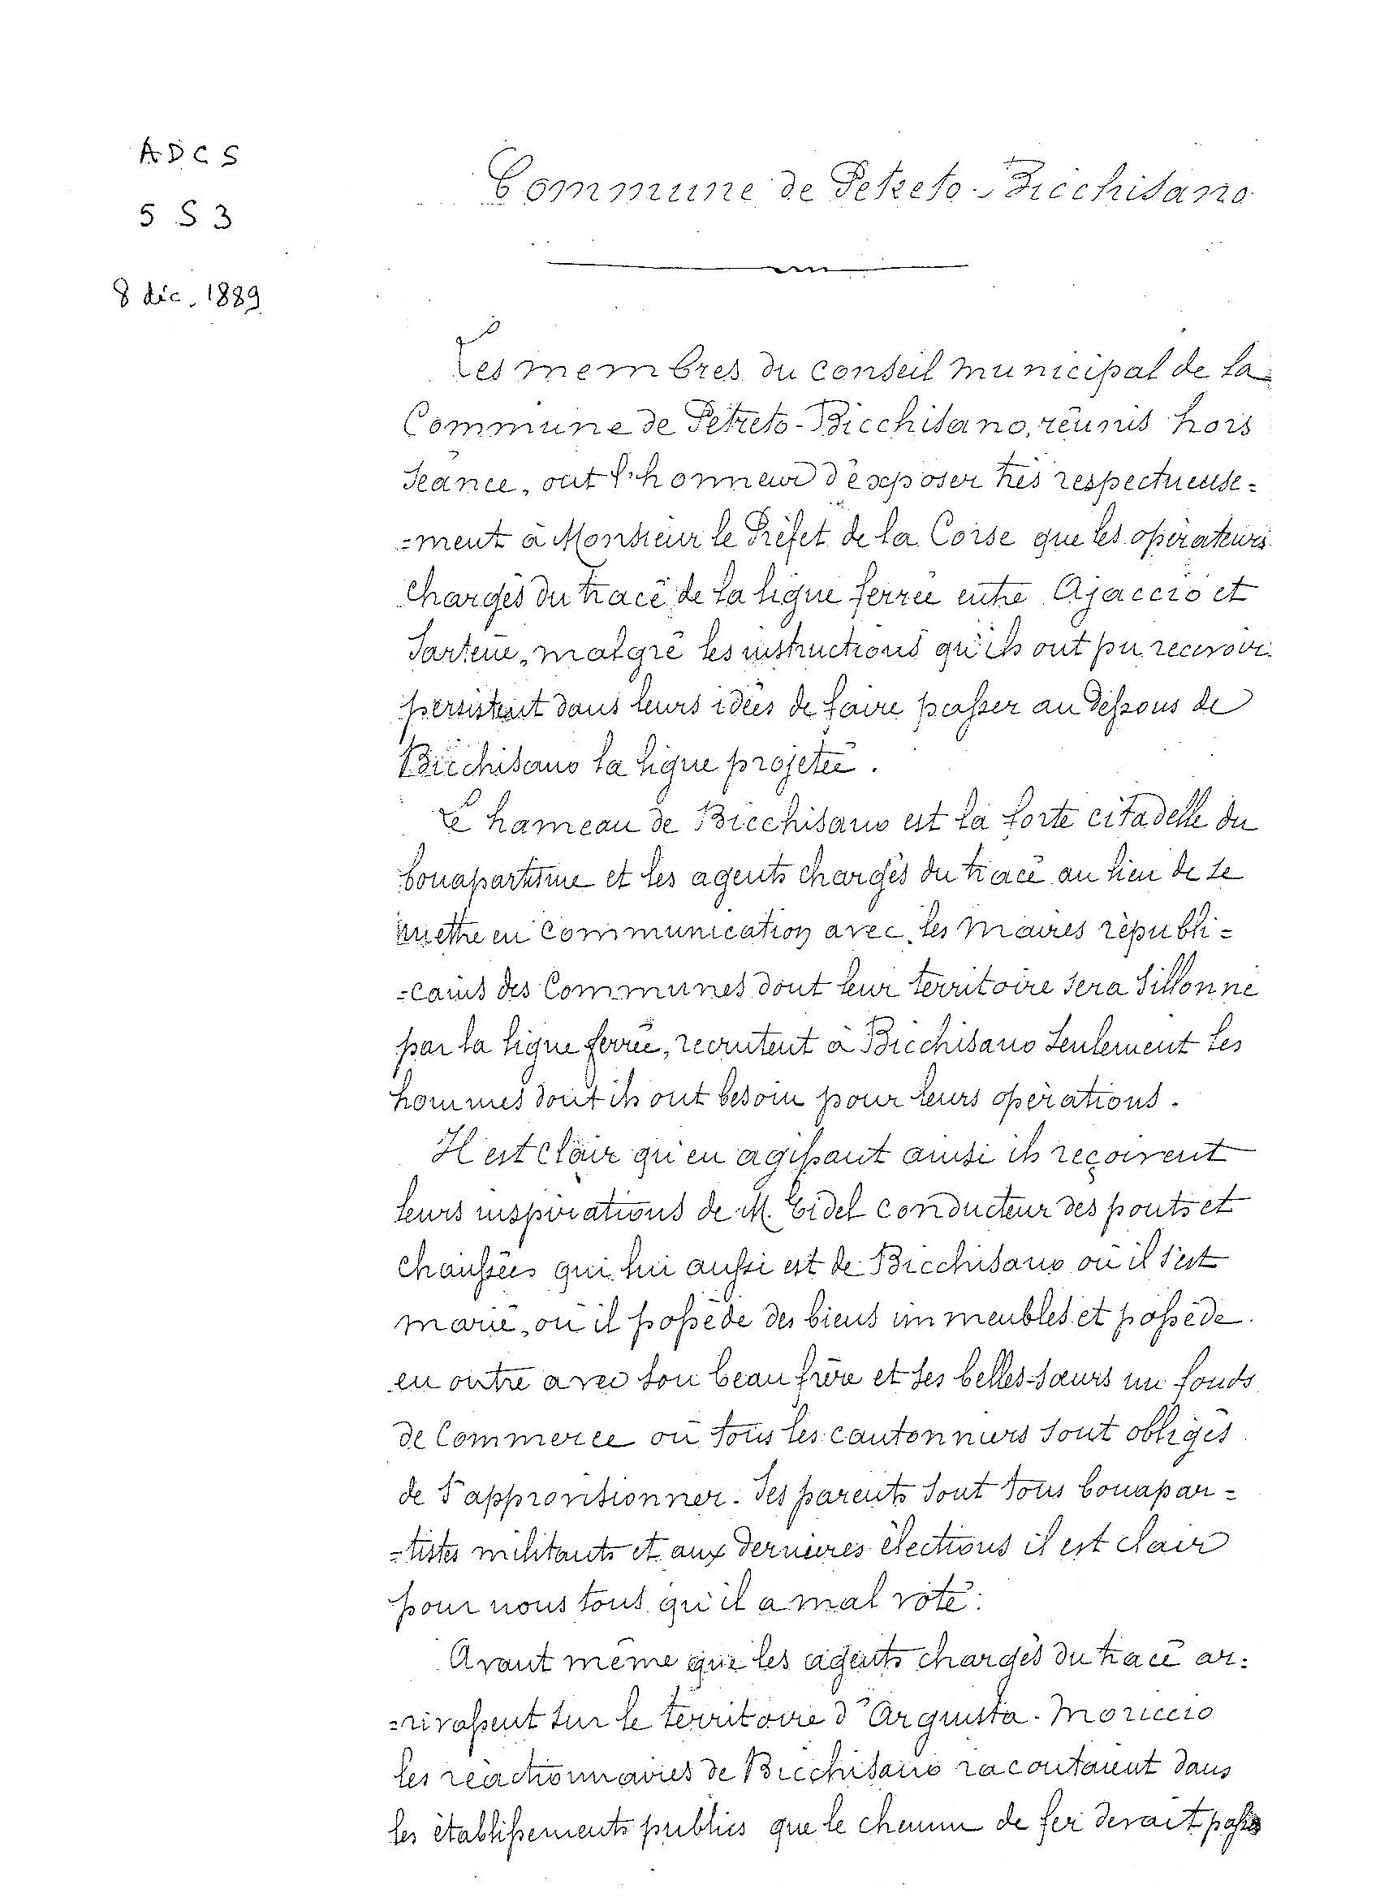 ADCS
5 S 3
8 déc. 1889
Commune de Petreto-Bicchisano
Les membres du conseil municipal de la
Commune de Petreto-Bicchisano, réunis hors
séance, ont l'honneur d'exposer très respectueuse=
=ment à Monsieur le Préfet de la Corse que les opérateurs
chargés du tracé de la ligne ferrée entre Ajaccio et
Sartène, malgré les instructions qu'ils ont pu recevoir
persistent dans leurs idées de faire passer au dessous de
Bicchisano la ligne projetée.
Le hameau de Bicchisano est la forte citadelle du
bonapartisme et les agents chargés du tracé au lieu de se
mettre en communication avec les maires républi=
=cains des Communes dont leur territoire sera sillonné
par la ligne ferrée, recrutent à Bicchisano seulement les
hommes dont ils ont besoin pour leurs opérations.
Il est clair qu'en agissant ainsi ils reçoivent
leurs inspirations de M. Eidel conducteur des ponts et
chaussées qui lui aussi est de Bicchisano où il s'est
marié, où il possède des biens immeubles et possède
en outre avec son beau frère et ses belles-sœurs un fonds
de commerce où tous les cantonniers sont obligés
de s'approvisionner. Ses parents sont tous bonapar=
=tistes militants et aux dernières élections il est clair
pour nous tous qu'il a mal voté.
Avant même que les agents chargés du tracé ar=
=rivassent sur le territoire d'Argiusta-Moriccio
les réactionnaires de Bicchisano racontaient dans
les établissements publics que le chemin de fer devait passer